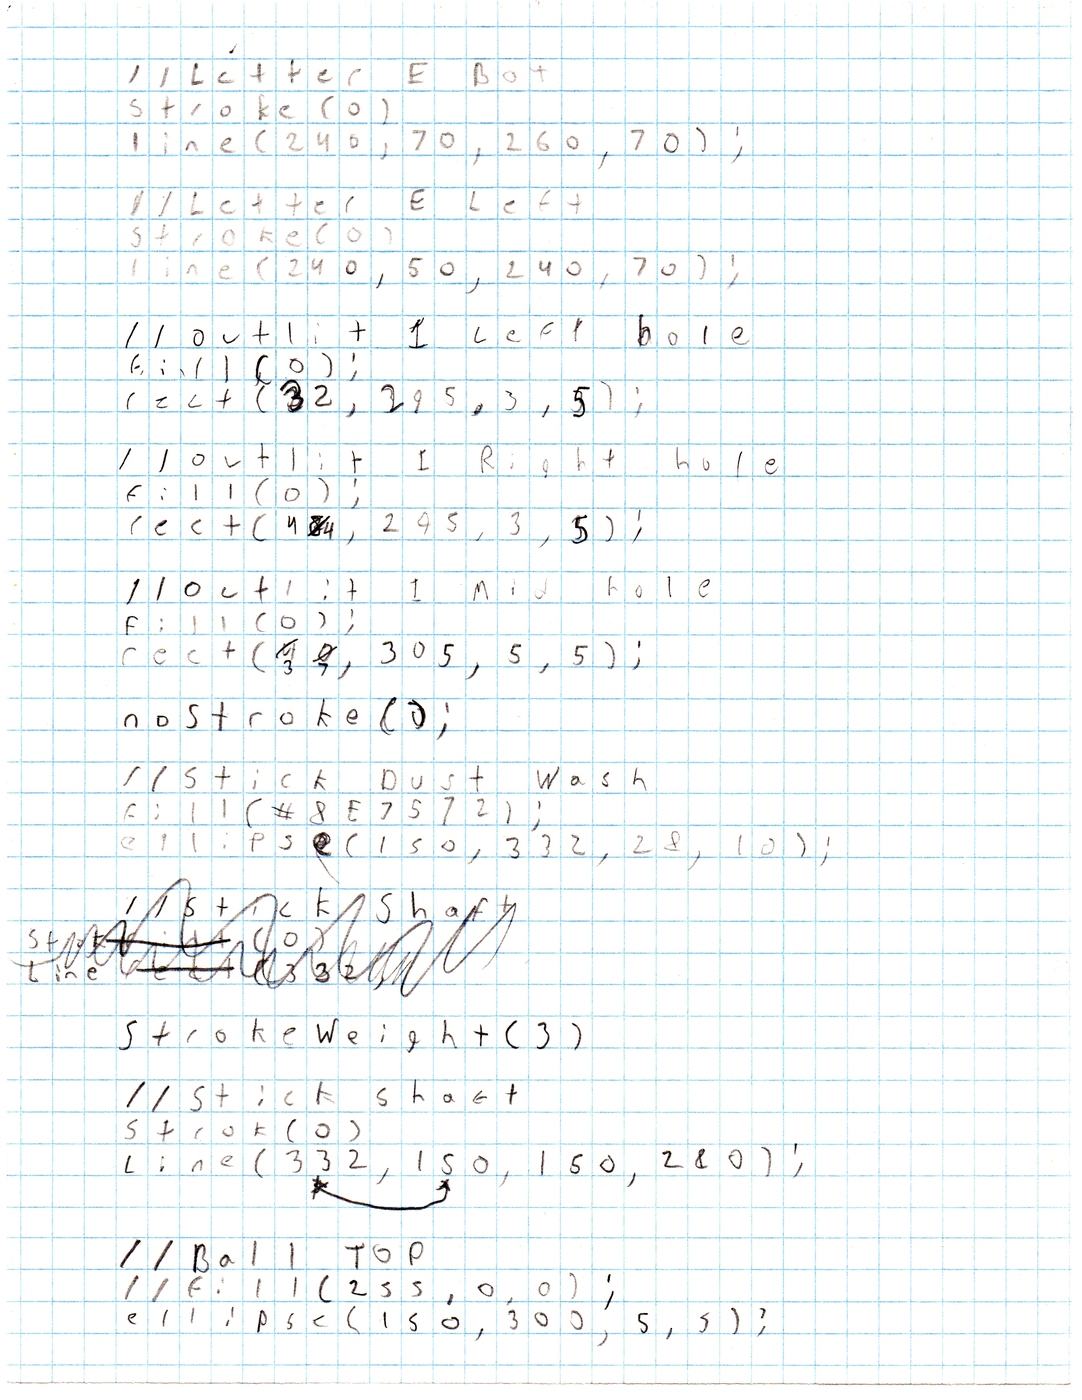 //Letter E Bot
Stroke(0)
line(240,70,260,70);
//Letter E Left
Stroke(0)
line(240,50,240,70);
//Outlit 1 Left hole
fill(0);
rect(32,295,3,5);
//Outlit 1 Right hole
fill(0);
rect(44,295,3,5);
//Outlit 1 Mid hole
Fill(0);
rect(37,305,5,5);
noStroke();
//Stick Dust Wash
fill(#8E7572);
ellipse(150,332,28,10);
//Stick Shaft
Strok (0)
Line (332,
StrokeWeight(3)
//Stick shaft
Strok(0)
Line(332,150,150,280);
//Ball TOP
//fill(255,0,0);
ellipse(150,300,5,5);